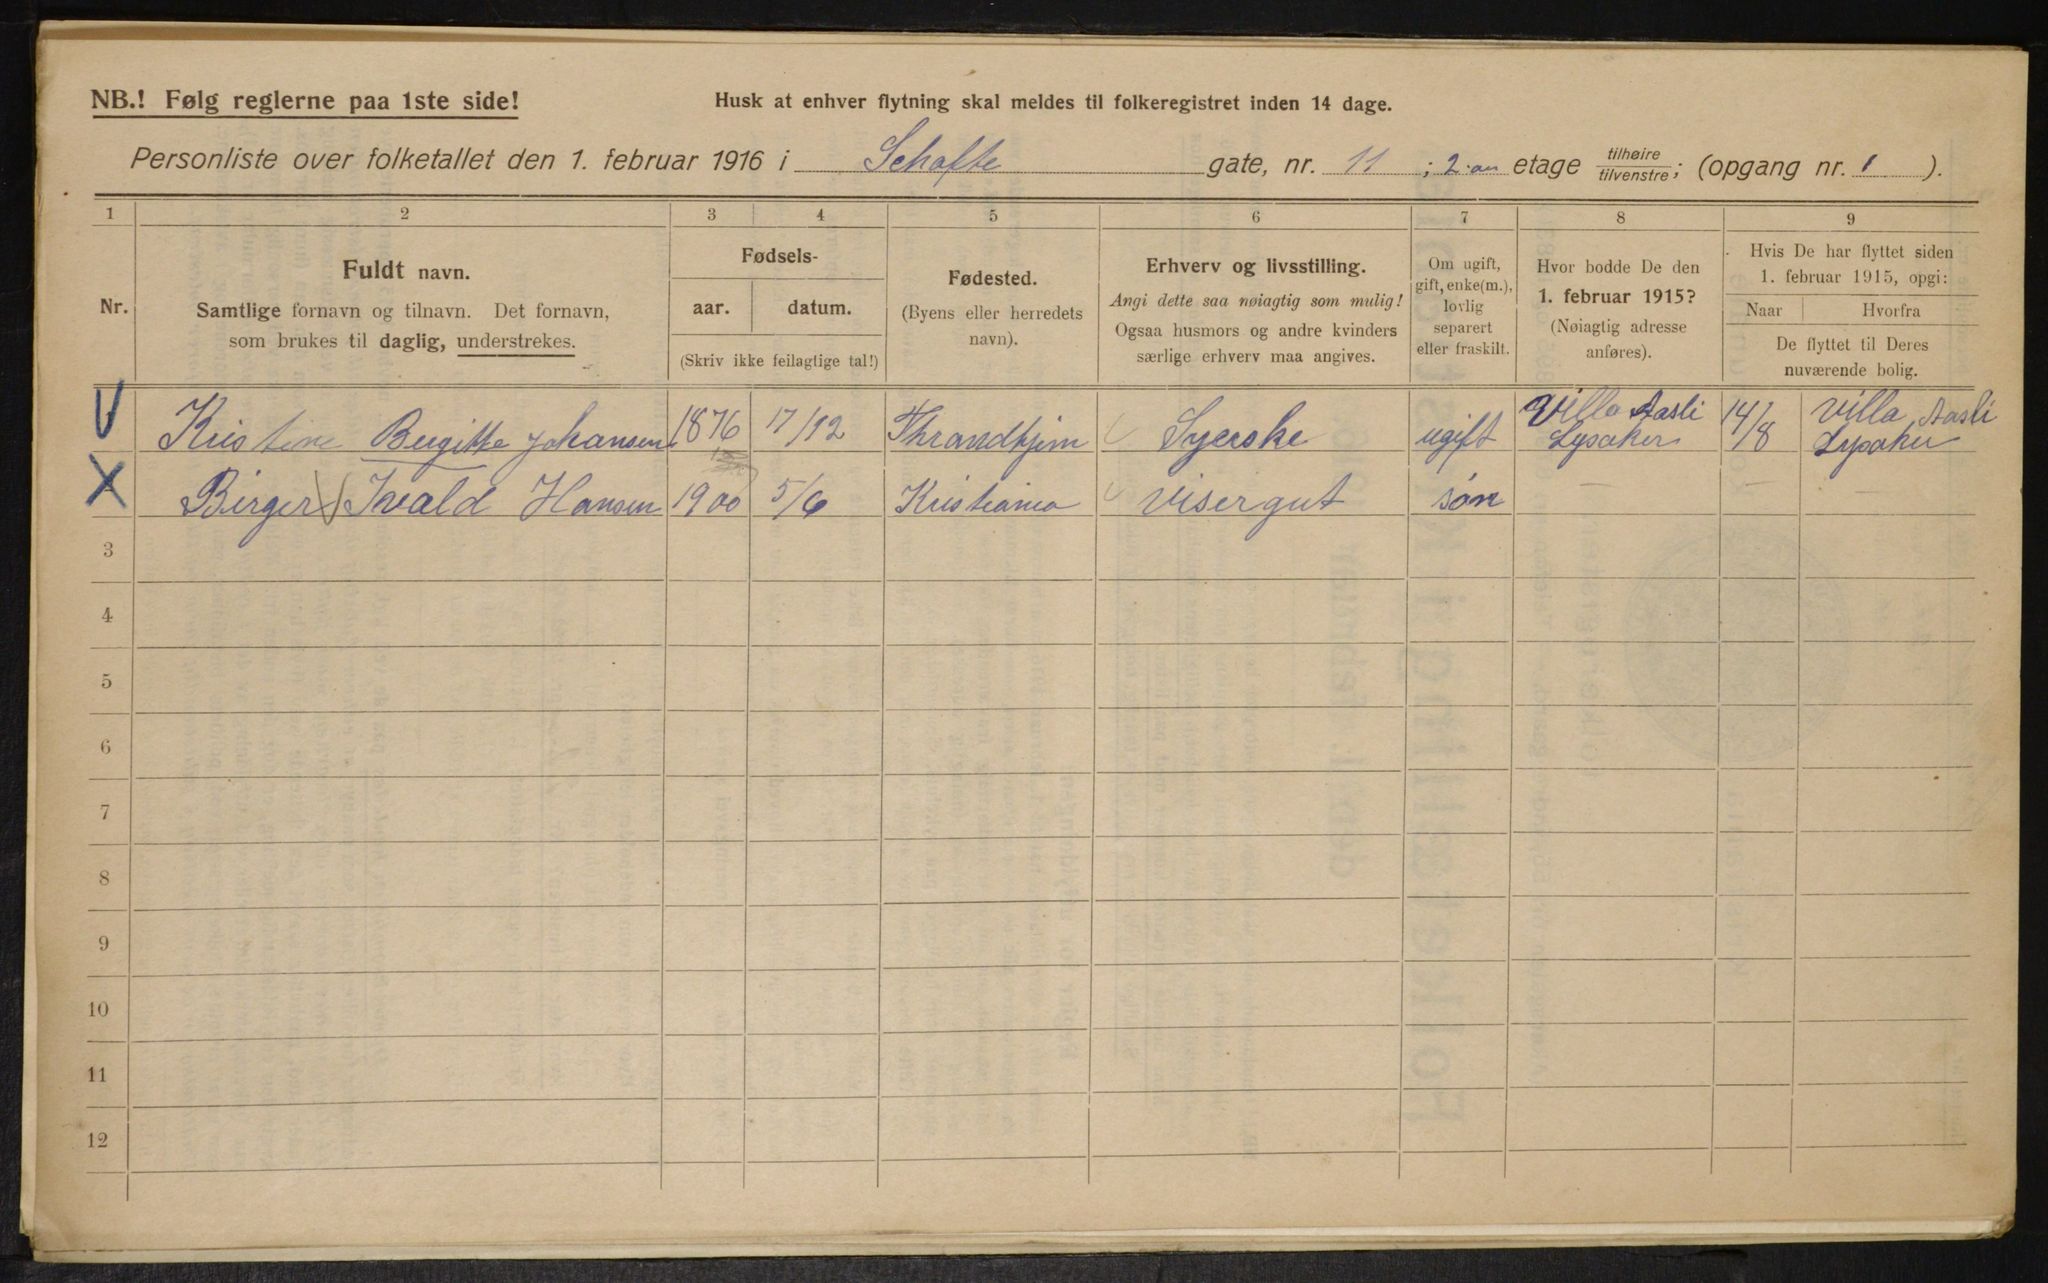 NB.! Følg reglerne paa 1ste side!
Husk at enhver flytning skal meldes til folkeregistret inden 14 dage.
Personliste over folketallet den 1. februar 1916 i Schafte gate, nr. 11 ; 2.an etage tilhøire tilvenstre; (opgang nr. 1 ).
1 2 3 4 5 6 7 8 9
Nr.
Fuldt navn.
Samtlige fornavn og tilnavn. Det fornavn,
som brukes til daglig, understrekes.
Fødsels-
aar. datum.
(Skriv ikke feilagtige tal!)
Fødested.
(Byens eller herredets
navn).
Erhverv og livsstilling.
Angi dette saa nøiagtig som mulig!
Ogsaa husmors og andre kvinders
særlige erhverv maa angives.
Om ugift,
gift, enke(m.),
lovlig
separert
eller fraskilt.
Hvor bodde De den
1. februar 1915?
(Nøiagtig adresse
anføres).
Hvis De har flyttet siden
1. februar 1915, opgi:
Naar Hvorfra
De flyttet til Deres
nuværende bolig.
Kristine Bergitte Johansen 1876 17/12 Thrandhjem Syerske ugift Villa Aasli Lysaker 14/8 Villa Aasli Lysaker
Birger Ivald Hansen 1900 5/6 Kristiania Visergut søn — — —
3
4
5
6
7
8
9
10
11
12